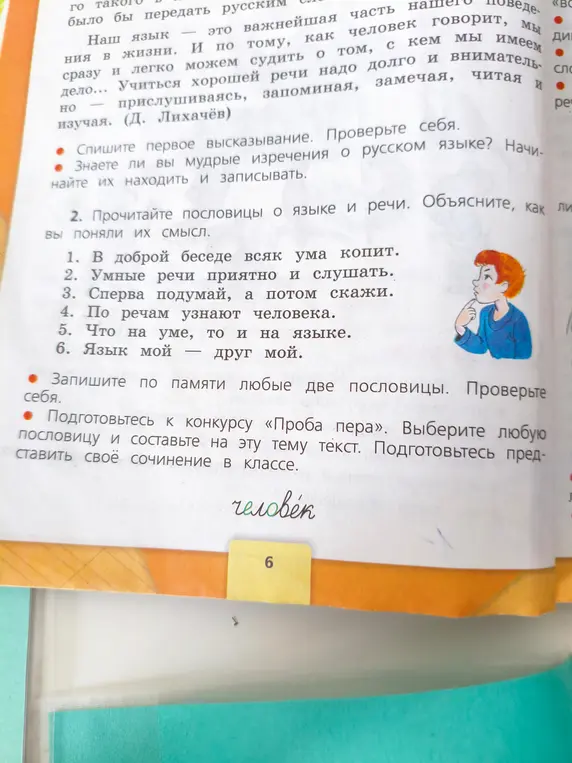 го такого в
было бы передать русским
Наш язык — это важнейшая часть нашего поведе-
ния в жизни. И по тому, как человек говорит, мы
сразу и легко можем судить о том, с кем мы имеем
дело... Учиться хорошей речи надо долго и вниматель-
но — прислушиваясь, запоминая, замечая, читая и
изучая. (Д. Лихачёв)
• Спишите первое высказывание. Проверьте себя.
• Знаете ли вы мудрые изречения о русском языке? Начи-
найте их находить и записывать.
2. Прочитайте пословицы о языке и речи. Объясните, как
вы поняли их смысл.
1. В доброй беседе всяк ума копит.
2. Умные речи приятно и слушать.
3. Сперва подумай, а потом скажи.
4. По речам узнают человека.
5. Что на уме, то и на языке.
6. Язык мой — друг мой.
• Запишите по памяти любые две пословицы. Проверьте
себя.
• Подготовьтесь к конкурсу «Проба пера». Выберите любую
пословицу и составьте на эту тему текст. Подготовьтесь пред-
ставить своё сочинение в классе.
челове́к
6